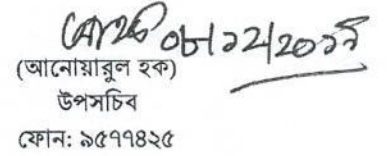 ০৮/১২/২০১৭
(আনোয়ারুল হক)
উপসচিব
ফোন: ৯৫৭৭৪২৫